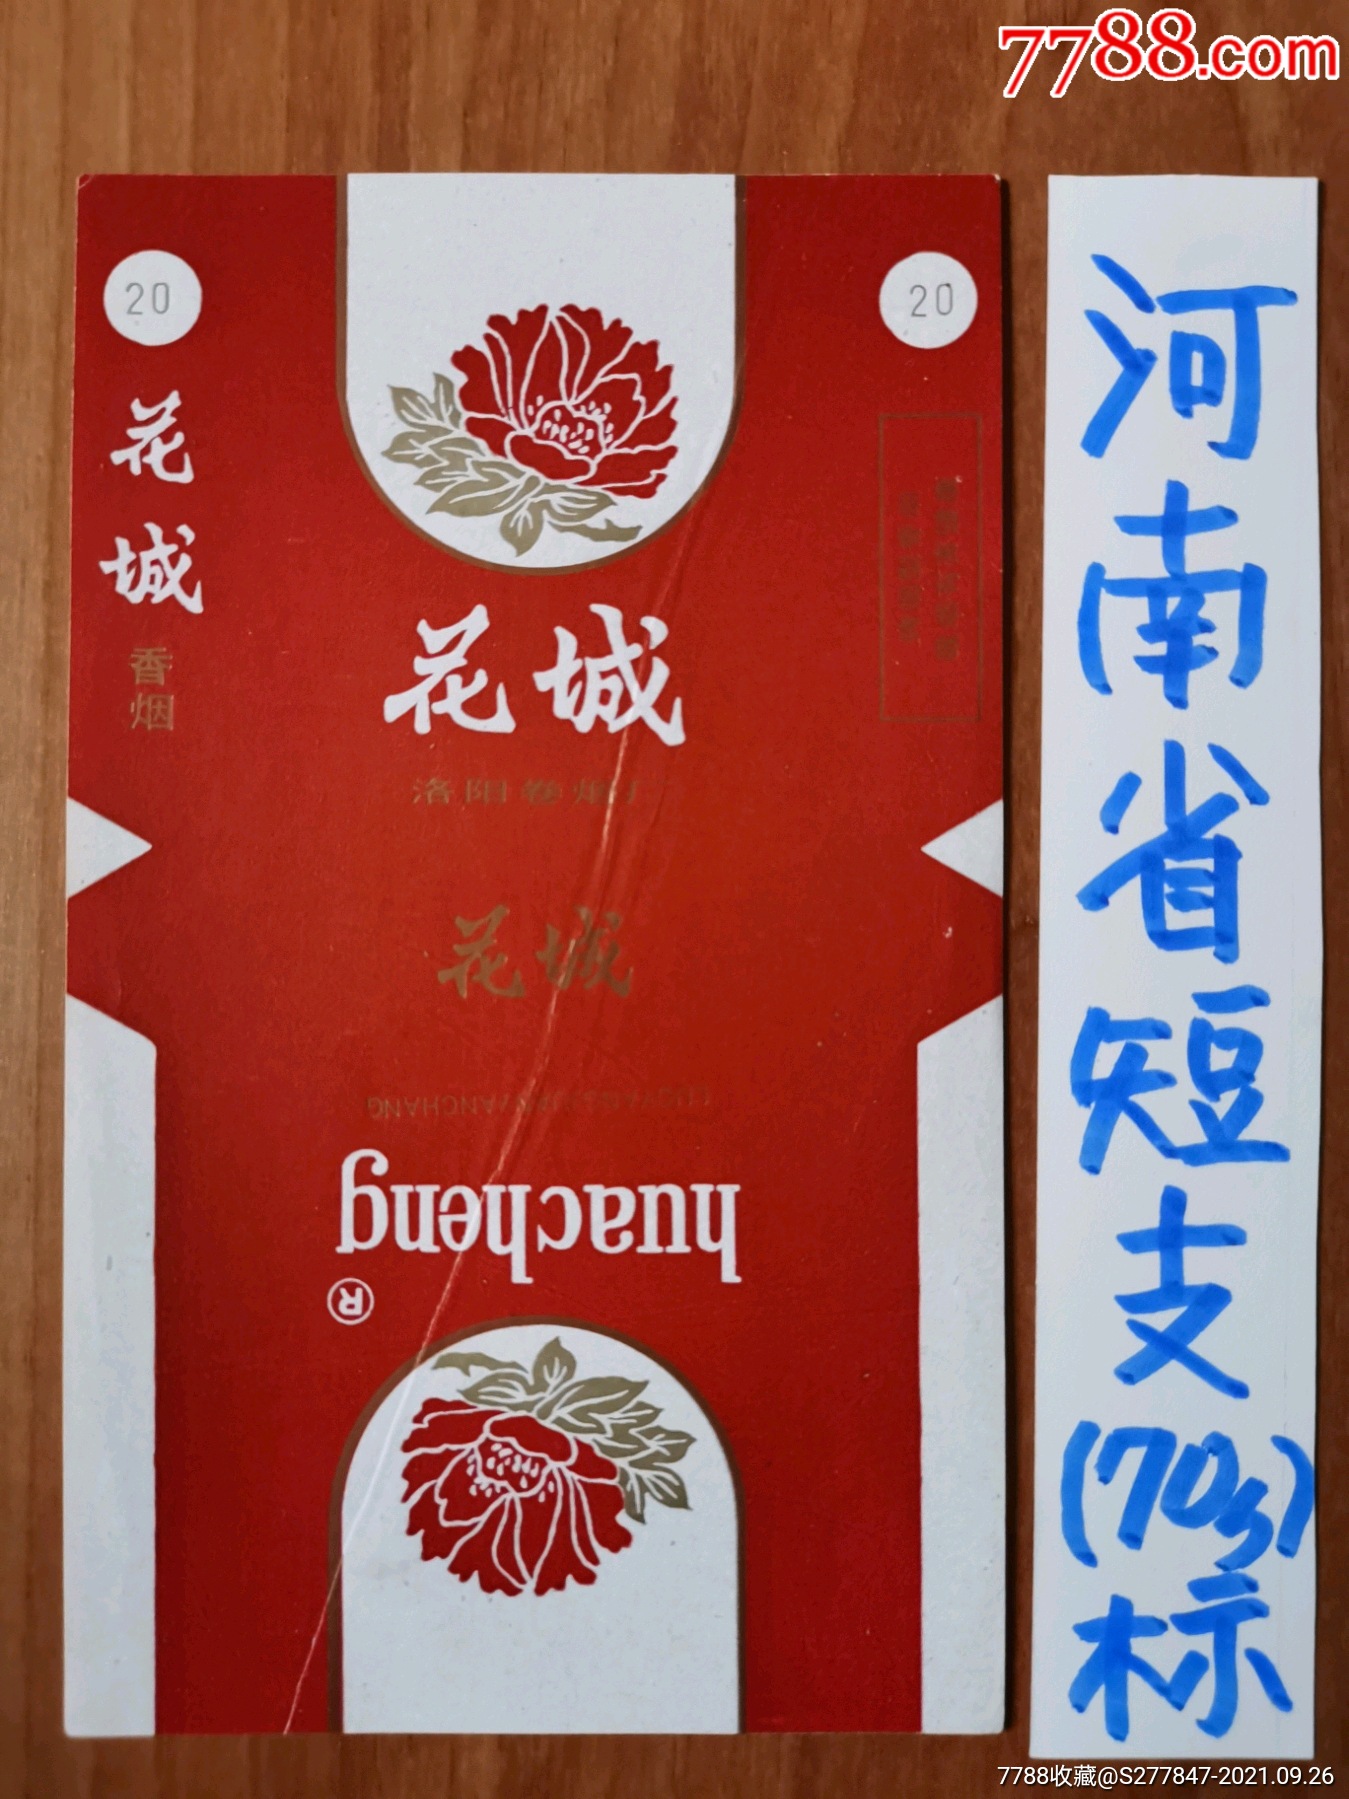 7788.com
20
20
花城
香烟
花城
洛阳卷烟厂
花城
LUOYANGJUANYANCHANG
huacheng
®
河南省短支(70s)标
7788收藏@S277847-2021.09.26